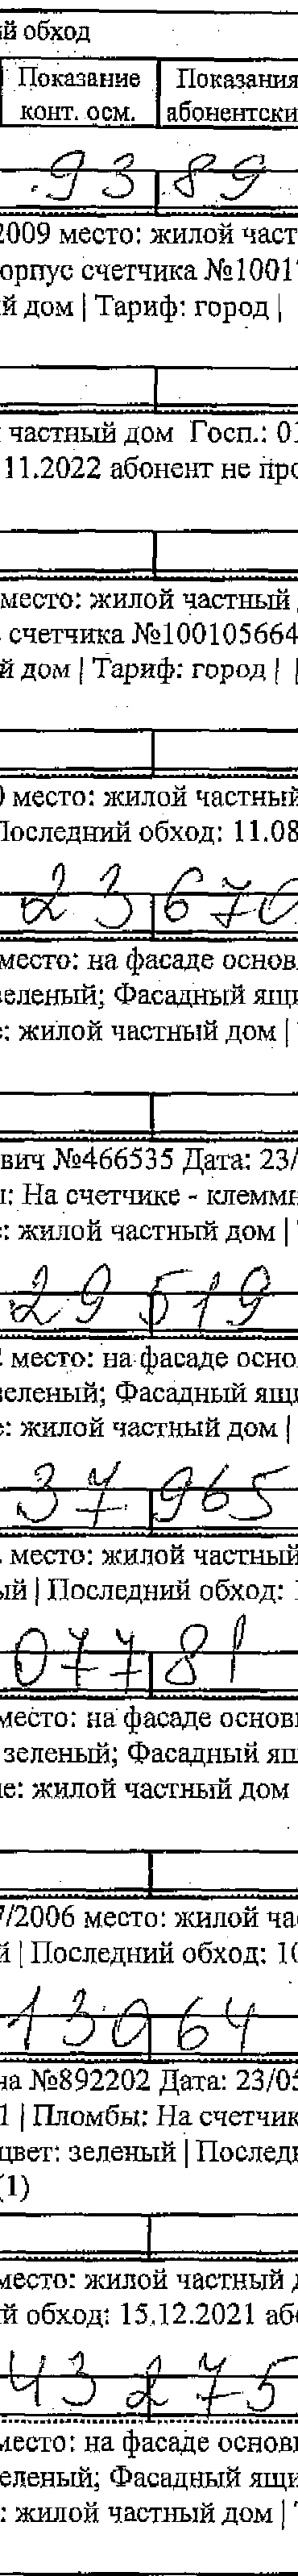 й обход
Показание Показания
конт. осм. абонентски
9389
2009 место: жилой част
орпус счетчика №1001
й дом | Тариф: город |
частный дом Госп.: 01
11.2022 абонент не про
место: жилой частный
счетчика №100105664
й дом | Тариф: город |
0 место: жилой частный
Последний обход: 11.08
23670
место: на фасаде основ
зеленый; Фасадный ящи
: жилой частный дом |
вич №466535 Дата: 23/
: На счетчике - клеммн
: жилой частный дом |
29519
место: на фасаде осно
зеленый; Фасадный ящи
е: жилой частный дом |
37965
место: жилой частный
ый | Последний обход: 1
07781
место: на фасаде основ
зеленый; Фасадный ящ
е: жилой частный дом
7/2006 место: жилой ча
й | Последний обход: 10
13064
на №892202 Дата: 23/05
1 | Пломбы: На счетчик
цвет: зеленый | Последн
(1)
место: жилой частный д
й обход: 15.12.2021 або
43275
место: на фасаде основ
еленый; Фасадный ящи
: жилой частный дом |